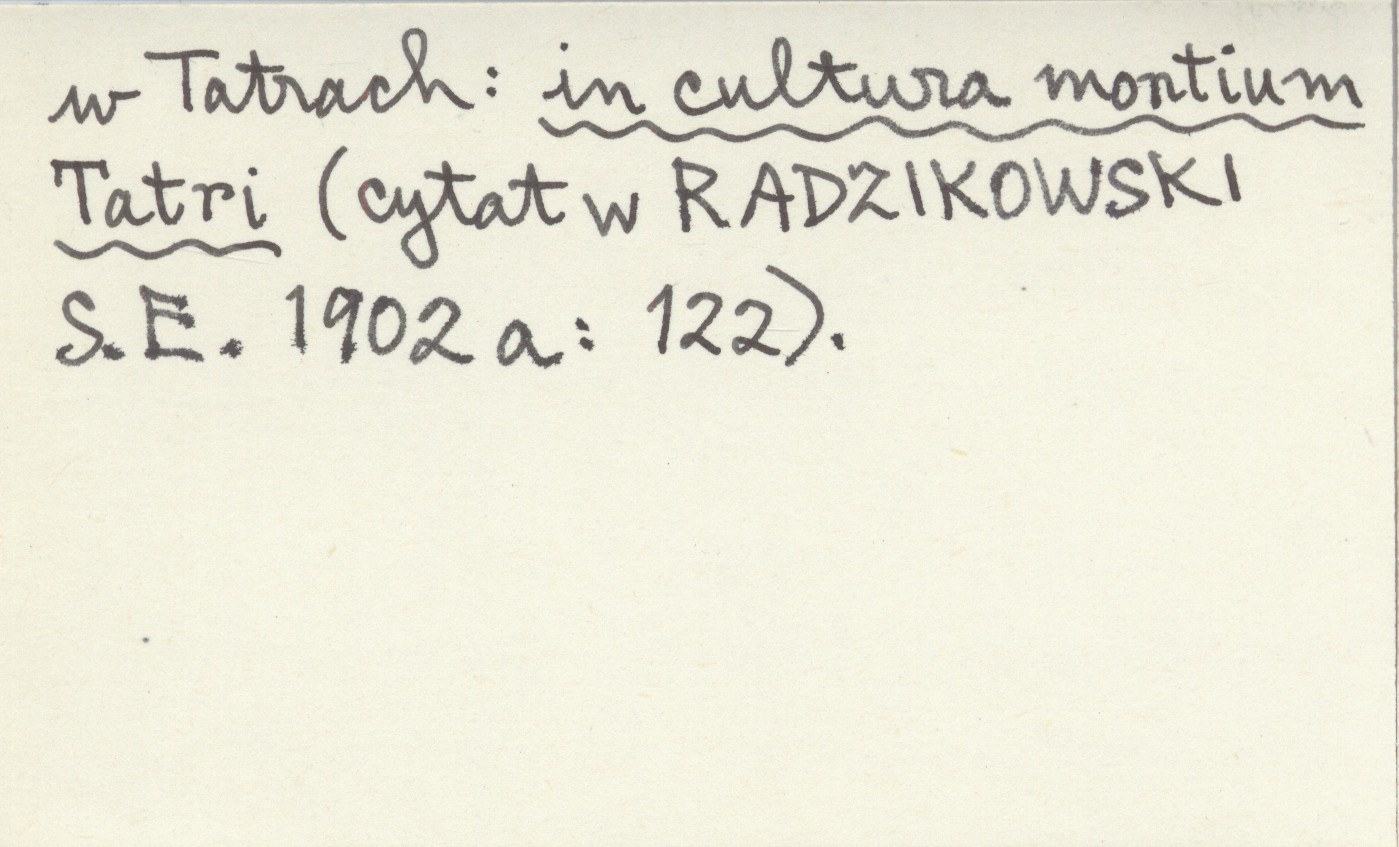 w Tatrach: in cultura montium
Tatri (cytat w RADZIKOWSKI
S.E. 1902 a: 122).